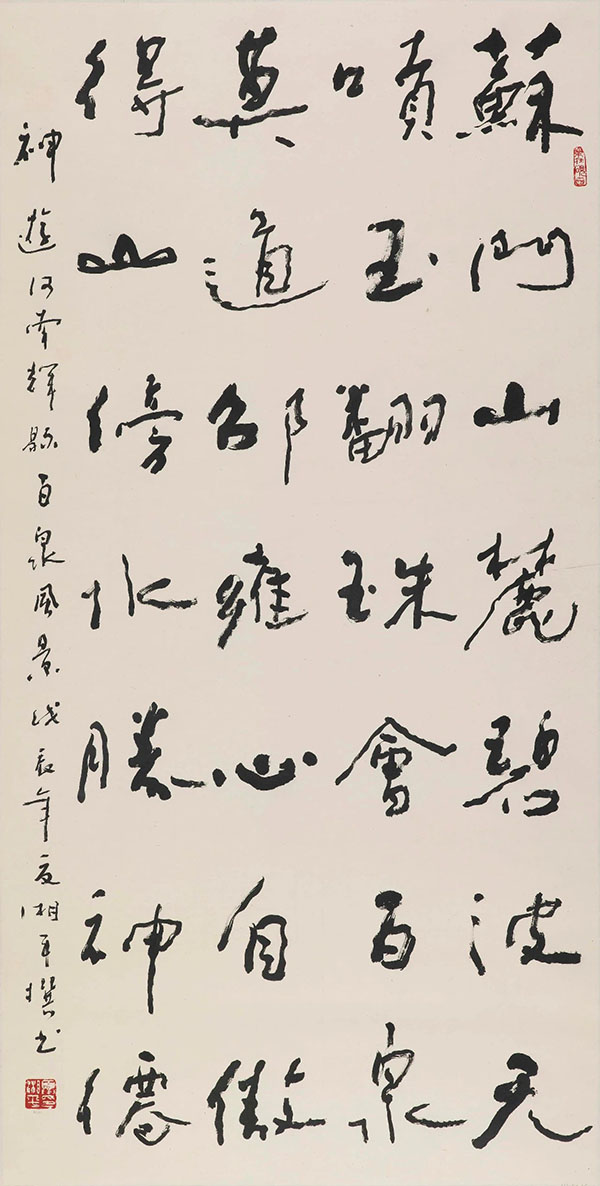 蘇門山麓碧波天
噴玉翻珠會百泉
莫道邵雍心自傲
得山傍水勝神僊
神遊河南輝縣百泉風景戊辰年夏湘平撰書